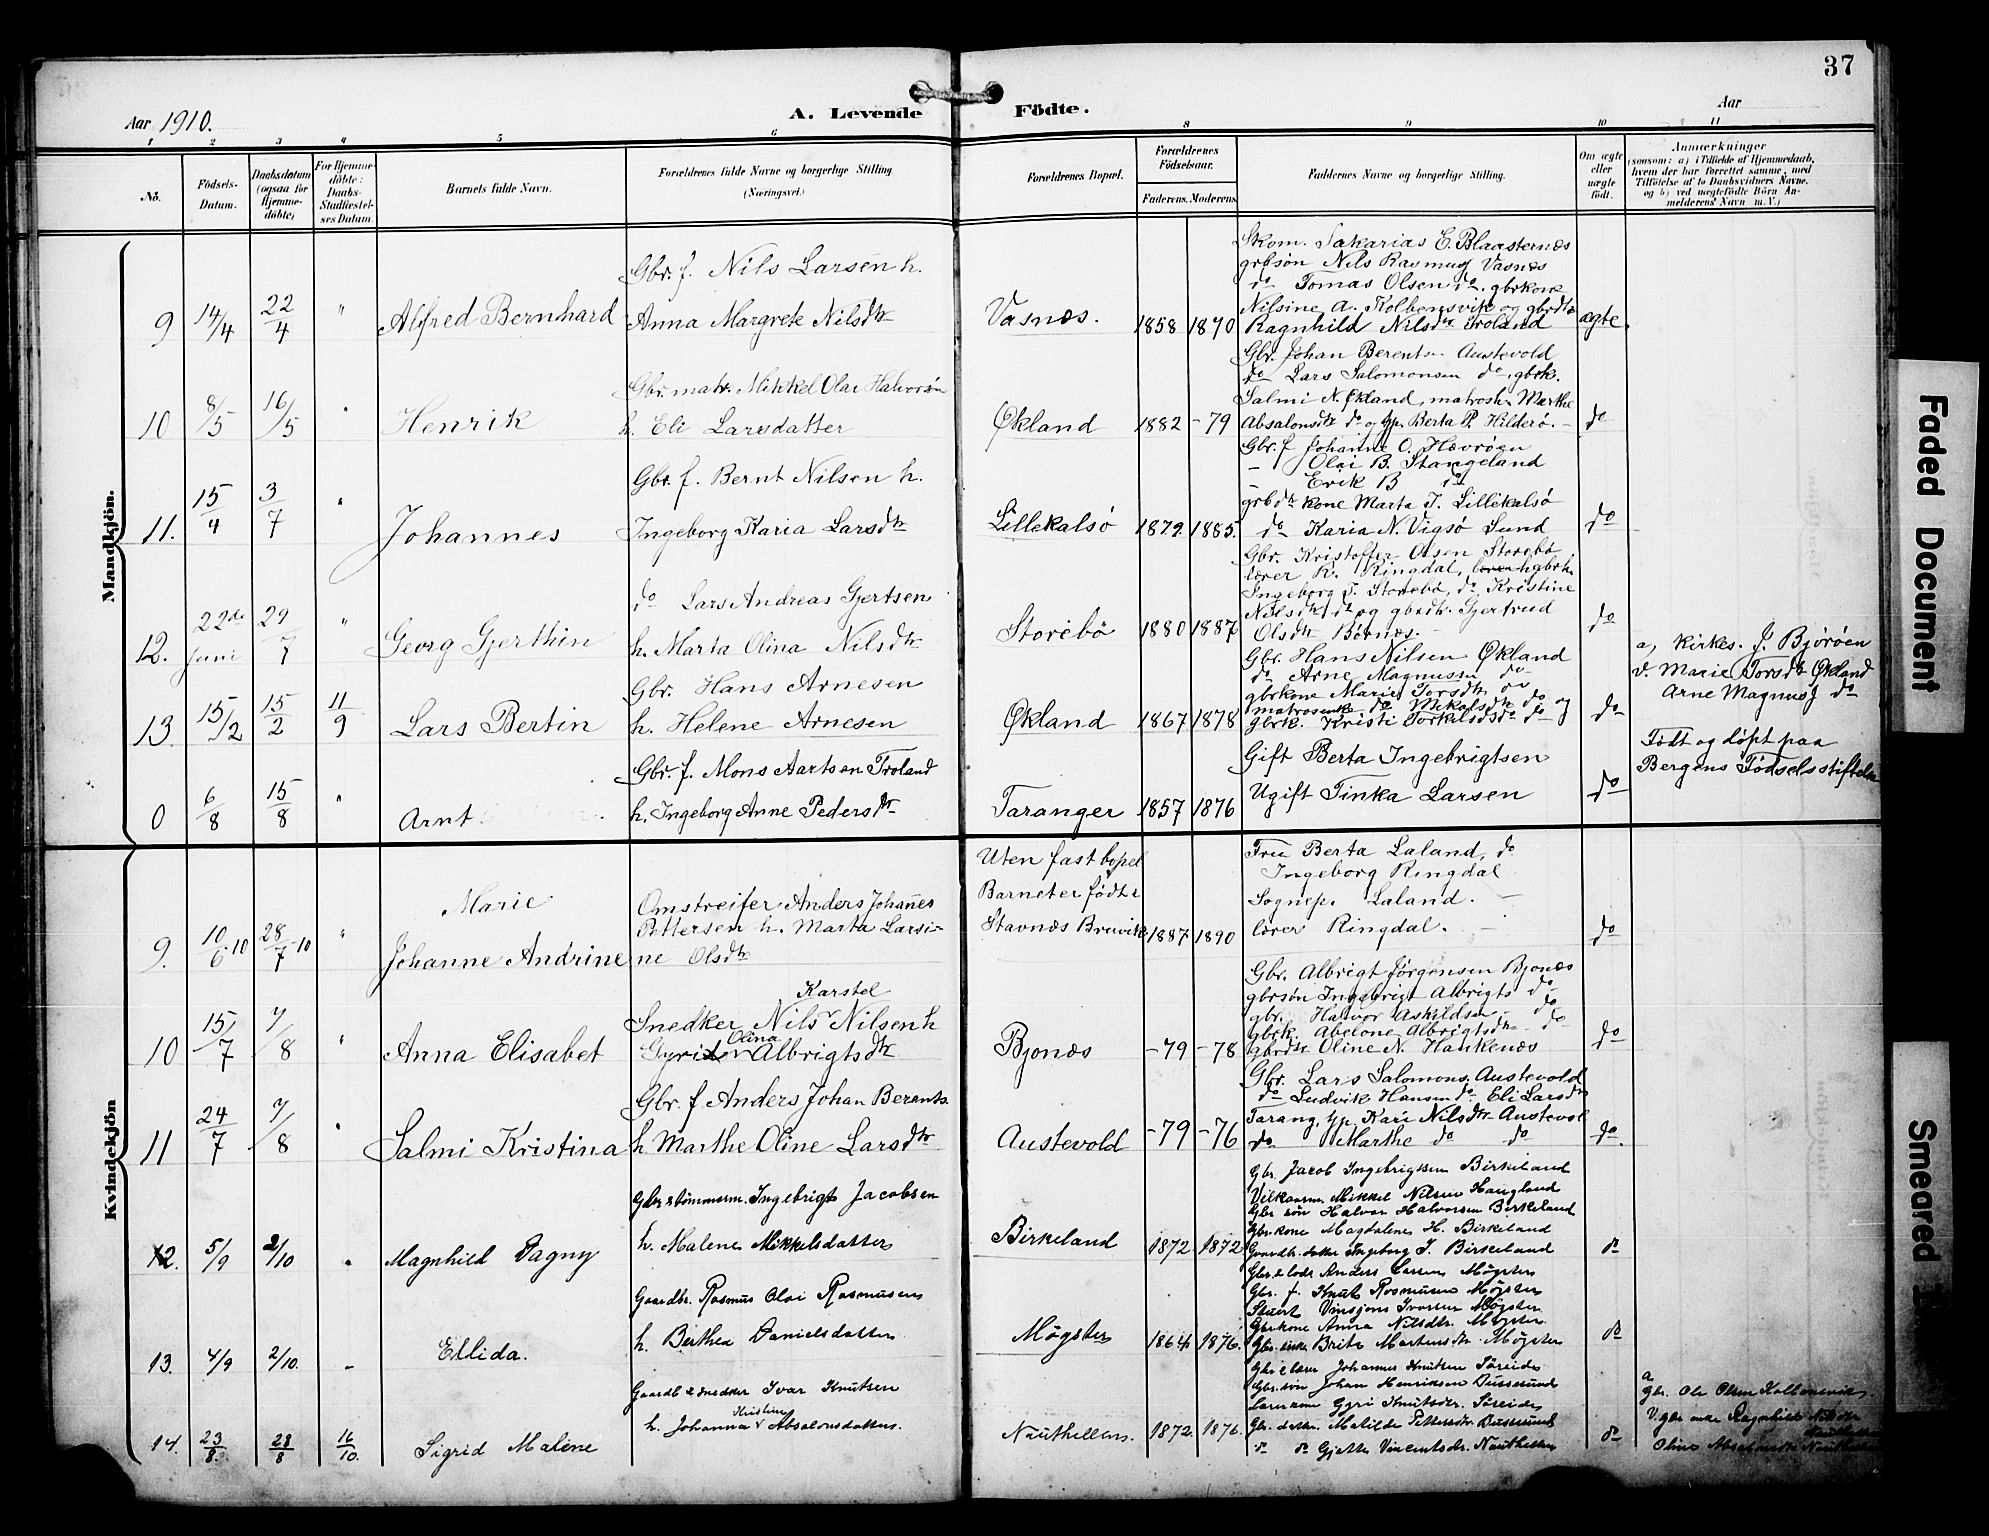 37
Aar 1910.
A. Levende Födte.
Aar
1 2 3 4 5 6 8 9 10 11
No.
Födsels-Datum.
Daabsdatum (ogsaa for Hjemme-döbte)
For Hjemme-döbte: Daabs-Stadfæstel-ses Datum.
Barnets fulde Navn.
Forældrenes fulde Navne og borgerlige Stilling.
(Næringsvei.)
Forældrenes Bopæl.
Forældrenes Födselsaar.
Faderens. Moderens.
Faddernes Navne og borgerlige Stilling.
Om ægte eller uægte födt.
Anmærkninger
(saasom: a) i Tilfælde af Hjemmedaab,
hvem der har forrettet samme, med
Tilföielse af to Daabsvidners Navne,
og b) ved uægtefödte Börn An-
melderens Navn m. V.)
Mandkjön.
9 14/4 22/4 " Alfred Bernhard
Gbr. f. Nils Larsen h.
Anna Margrete Nilsdtr
Vasnes. 1858 1870
Skom. Sakarias E. Blaasternes
grbsön Nils Rasmusj Vasnes
do Tomas Olsen do, gbrkone
Nilsine A. Kolbensvik og gbrdtr
Ragnhild Nilsdtr Troland
ægte.
10 8/5 16/5 " Henrik
Gbr. matr. Mikkel Olai Halvorsön
h. Eli Larsdatter
Økland 1882 -79
Gbr. Johan Berentsen Austevold
do Lars Salomonsen do, gbrk.
Salmi N. Økland, matrosk. Marthe
Absalonsdtr do og gp. Berta P. Hilderö.
do
11. 15/4 3/7 " Johannes
Gbr. f. Bernt Nilsen h.
Ingeborg Karia Larsdtr
Lillekalsö 1879. 1885.
Gbr. f Johanne O. Hevröen
- Olai B. Stangeland
- Erik B do
grbdtr kone Marta J. Lillekalsö
do Karia N. Vigsö Sund
do
12. 22de Juni 29/7 " Georg Gjerthin
do Lars Andreas Gjertsen
h. Marta Olina Nilsdtr
Storebö 1880 1887
Gbr. Kristoffer Olsen Storebö
lærer R. Ringdal, gbrk.
Ingeborg J. Storebö, do Kristine
Nilsdtr do og gbrdtr. Gjertrud
Olsdtr Börnes.
do
13. 15/2 15/2 11/9 Lars Bertin
Gbr. Hans Arnesen
h. Helene Arnesen
Økland 1867 1878
Gbr. Hans Nilsen Økland
do Arne Magnussen do
gbrkone Marie Torsdtr do
matrosenke do Mikalsdtr do og
gbrk. Kristi Torkildsdtr do
do
a, kirkes. J. Björöen
v. Marie Torsdtr Økland
Arne Magnusj do
0 6/8 15/8 " Arnt
Gbr. f. Mons Aartsen Troland
h. Ingeborg Anne Pedersdtr
Taranger 1857 1876
Gift Berta Ingebrigtsen
Ugift Tinka Larsen
do
Födt og döpt paa
Bergens Födselsstiftelse
Kvindekjön
9. 10/6 10 28/7 -10 " Marie
Johanne Andrine
Omstreifer Anders Johanes
Pettersen h. Marta Larsi-
ne Olsdtr
Uten fast bopel
Barnet er födt i
Stavnes Bruvik
1887 1890
Fru Berta Laland, do
Ingeborg Ringdal
Sognep. Laland.
lærer Ringdal.
do
10 15/7 7/8 " Anna Elisabet
Karstel
Snedker Nils Nilsen h
Olina
Gyri Albrigtsdtr
Bjones -79 -78
Gbr. Albrigt Jörgensen Bjones
gbrsön Ingebrigt Albrigts do
gbr. Halvor Askildsen do
gbrk. Abelone Albrigtsdtr do
Gbrdtr Oline N. Haukenes
do
11 24/7 7/8 " Salmi Kristina
Gbr. f Anders Johan Berents.
h. Marthe Oline Larsdtr
Austevold -79 -76
Gbr. Lars Salomons. Austevold
do Ludvik Hansen do Eli Larsdtr
Tarang. gp. Kari Nilsdtr Austevol
do Marthe do do
do.
12. 5/9 2/10 " Magnhild Dagny
Gbr & tömmerm. Ingebrigt Jacobsen
h. Malene Mikkelsdatter
Birkeland 1872. 1872
Gbr. Jacob Ingebrigtsen Birkeland
Vilkaarsm. Mikkel Nilsen Haugland
Gbr sön Halvor Halvorsen Birkeland
Gbr kone Magdalene H. Birkeland
Gaardb. datter Ingeborg J. Birkeland
do
13. 4/9 2/10. - Ellida.
Gaardbr. Rasmus Olai Rasmusen
h. Berthea Danielsdatter
Mögster 1864 1876.
Gbr & lods Anders Larsen Mögster
Gbr. f. Knut Rasmusen Mögster
Vinsjans Ivarsen Mögster
Gbr kone Anna Nilsdtr. Mögster
Gbr. enke Brite Martensdtr. Mögster
do
14. 23/8. 28/8 16/10. Sigrid Malene
Gaardb & snedker Ivar Knutsen
Kristine
h. Johanna Absalonsdatter.
Nauthellen. 1872 1876.
Gbr & lærer Johannes Knutsen Töreide
Gbr. sön Johan Henriksen Bussesund
Lærerkone Gyri Knutsdtr. Töreide
Gbr. datter Matilde Pettersdtr Bussesund
do do Gjertr. Vincentsdtr. Nauthellen
do
a
Gbr. Ole Olsen Kolbensvik
V. gbr enke Ragnhild Nilsdtr
Nauthellen
Oline Absalonsdtr Nauthellen
Faded Document
Smeared